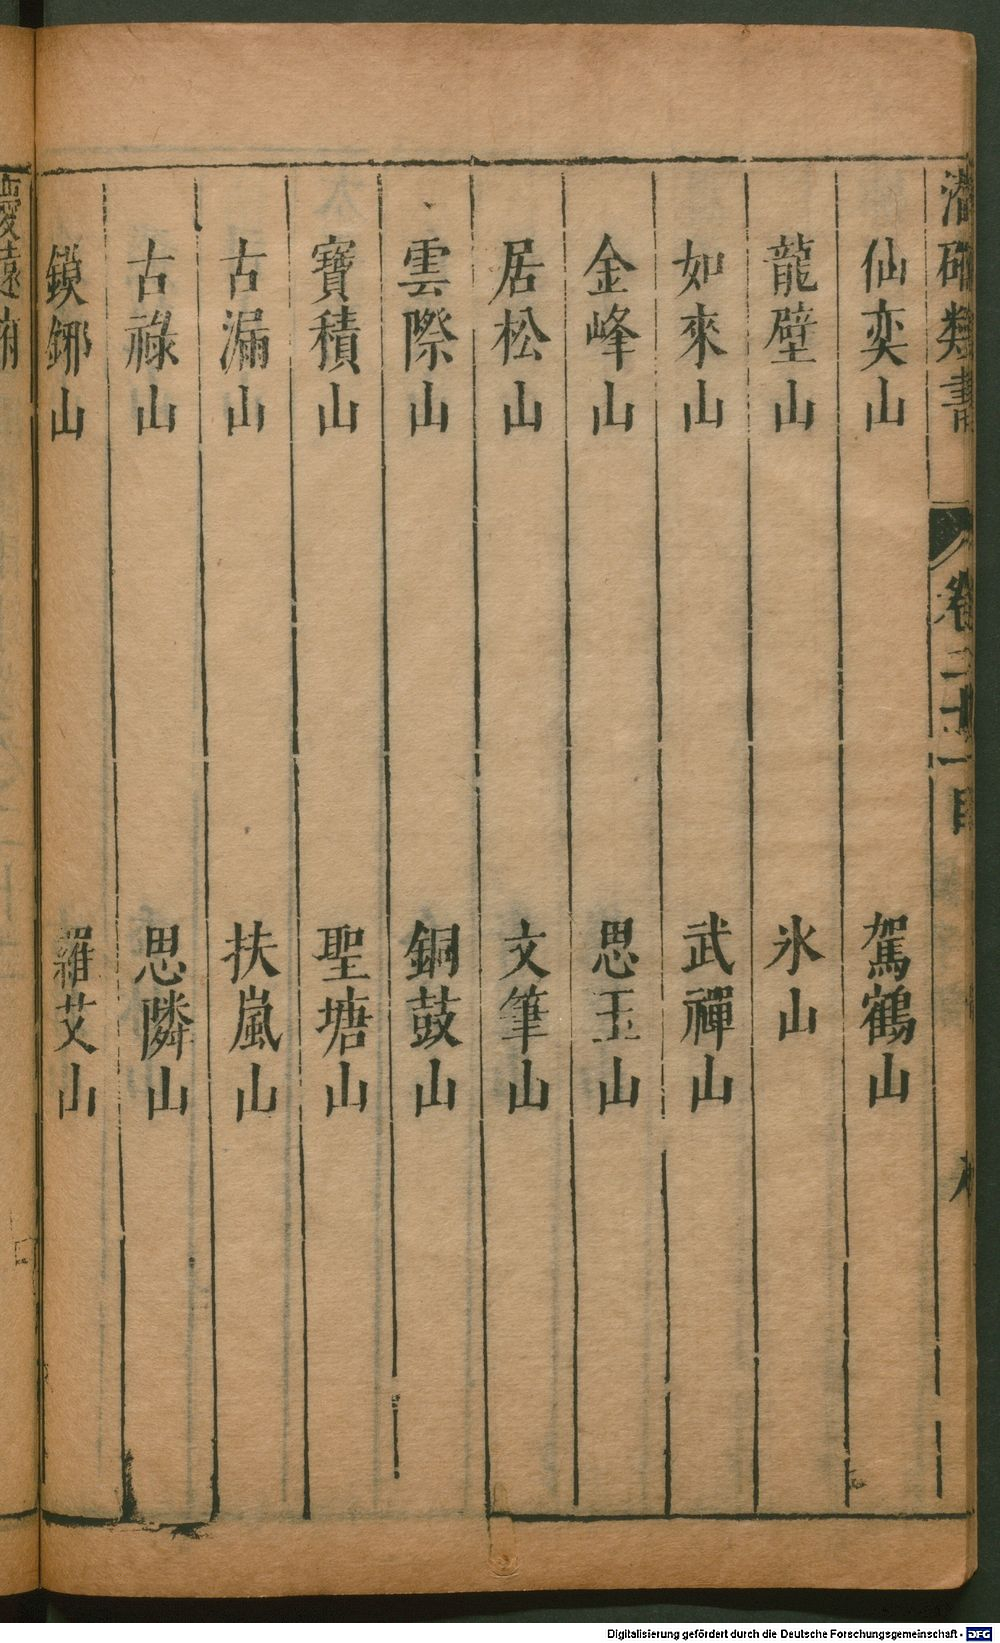 潛確類書 卷二十一目
仙奕山 駕鶴山
龍壁山 氷山
如來山 武禪山
金峰山 思玉山
居松山 文筆山
雲際山 銅鼓山
寶積山 聖塘山
古漏山 扶嵐山
古祿山 思隣山
鏌鎁山 羅艾山
慶遠府
Digitalisierung gefördert durch die Deutsche Forschungsgemeinschaft - DFG